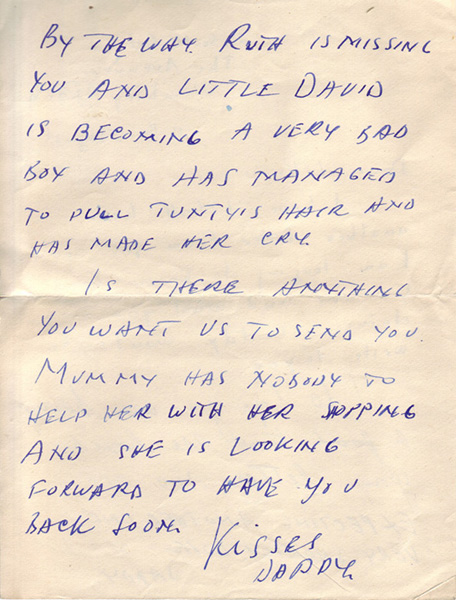 BY THE WAY. RUTH IS MISSING
YOU AND LITTLE DAVID
IS BECOMING A VERY BAD
BOY AND HAS MANAGED
TO PULL TUNTYIS HAIR AND
HAS MADE HER CRY.
IS THERE ANYTHING
YOU WANT US TO SEND YOU
MUMMY HAS NOBODY TO
HELP HER WITH HER SHOPPING
AND SHE IS LOOKING
FORWARD TO HAVE YOU
BACK SOON.
KISSES
DADDY.